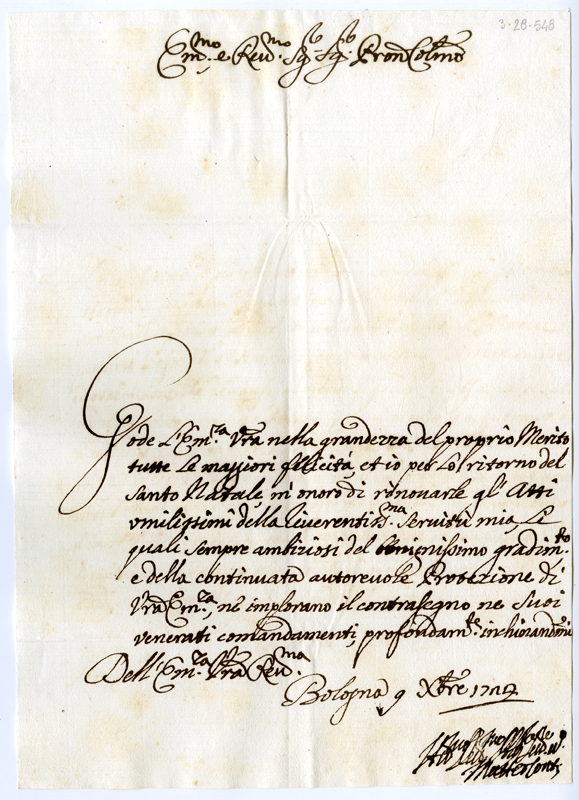 3-28-548
Em.mo e Rev.mo Sig.r Sig.r Pron Colmo
Gode L'Em.za Vra nella grandezza del proprio Merito
tutte le maggiori felicità, et io per Lo ritorno del
Santo Natale m'onoro di rinovarle gl'Atti
umilissimi della reverentiss.ma servitù mia, Le
quali sempre ambiziosi del benignissimo gradim.to
e della continuata autorevole Protezione di
Vra Em.za, ne implorano il contrasegno ne Suoi
venerati comandamenti, profondam.te inchinandomi
Dell'Em.za Vra Rev.ma
Bologna 9 Xbre